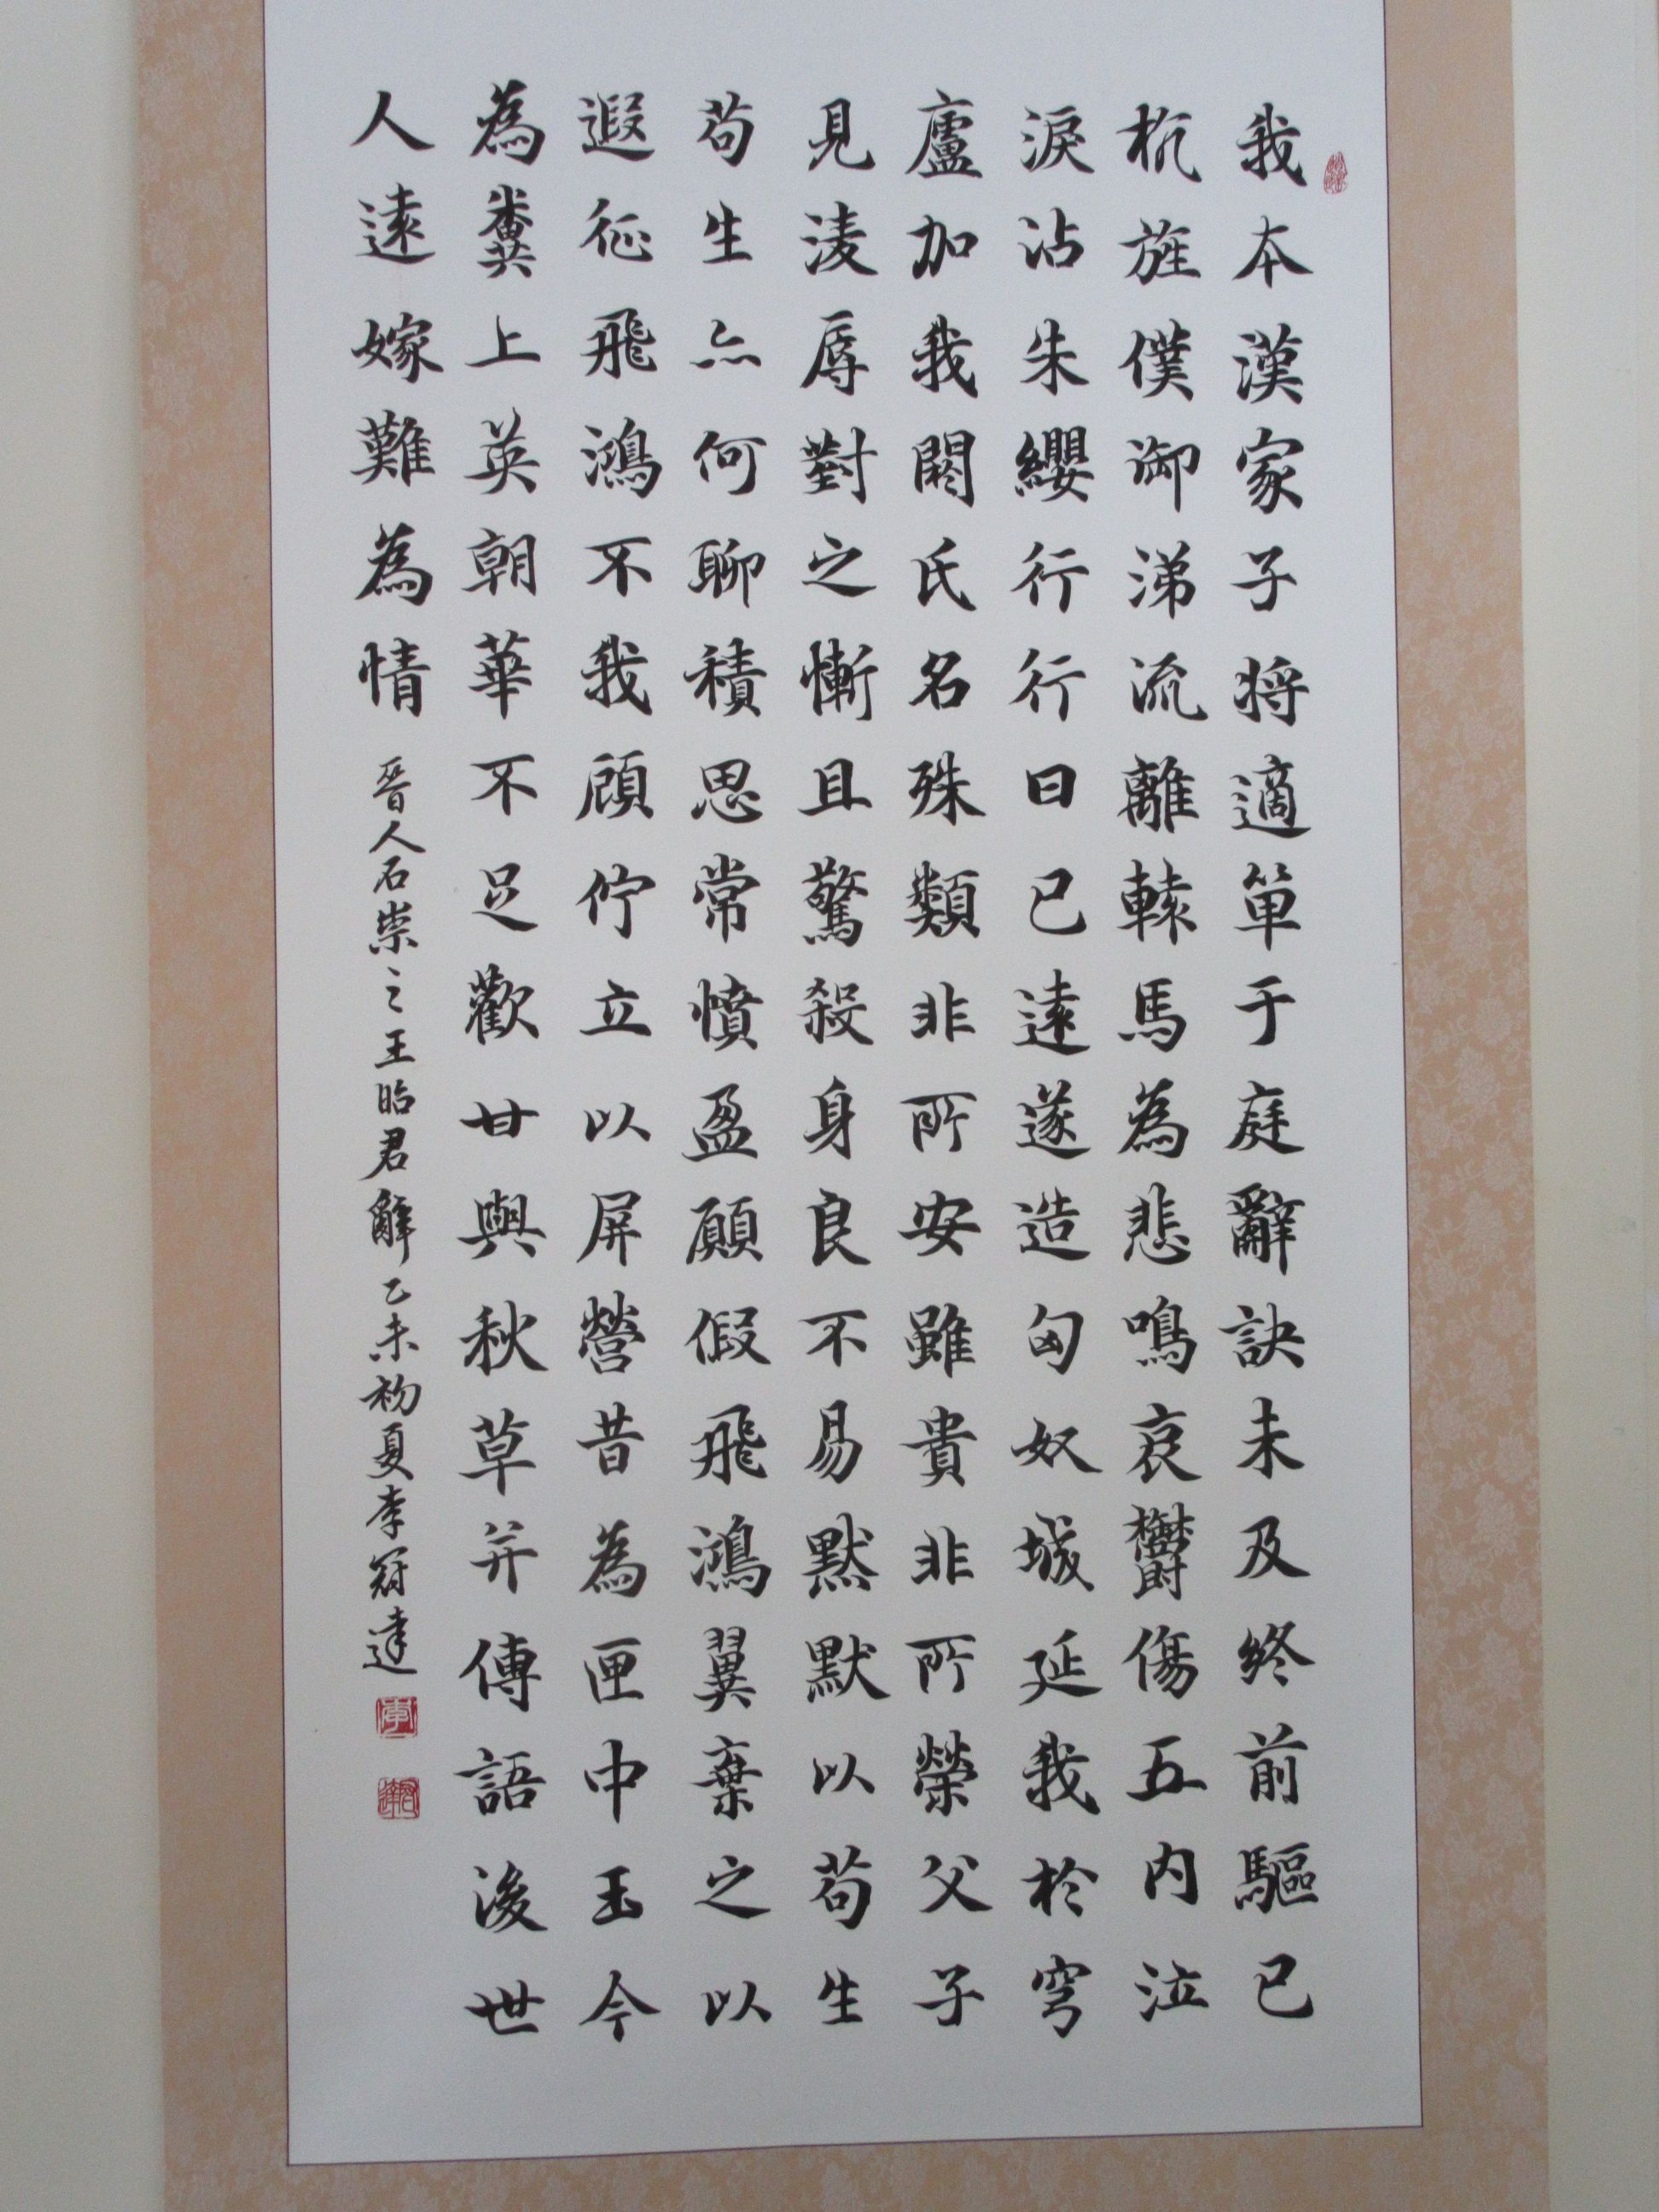 我本漢家子將適單于庭辭訣未及終前驅已
杭旌僕御涕流離轅馬為悲鳴哀鬱傷五內泣
淚沾朱纓行行日已遠遂造匈奴城延我於穹
廬加我閼氏名殊類非所安雖貴非所榮父子
見淩辱對之慚且驚殺身良不易默默以苟生
苟生亦何聊積思常憤盈願假飛鴻翼棄之以
遐征飛鴻不我顧佇立以屏營昔為匣中玉今
為糞上英朝華不足歡甘與秋草并傳語後世
人遠嫁難為情
晉人石崇之王昭君辭乙未初夏李冠達
李